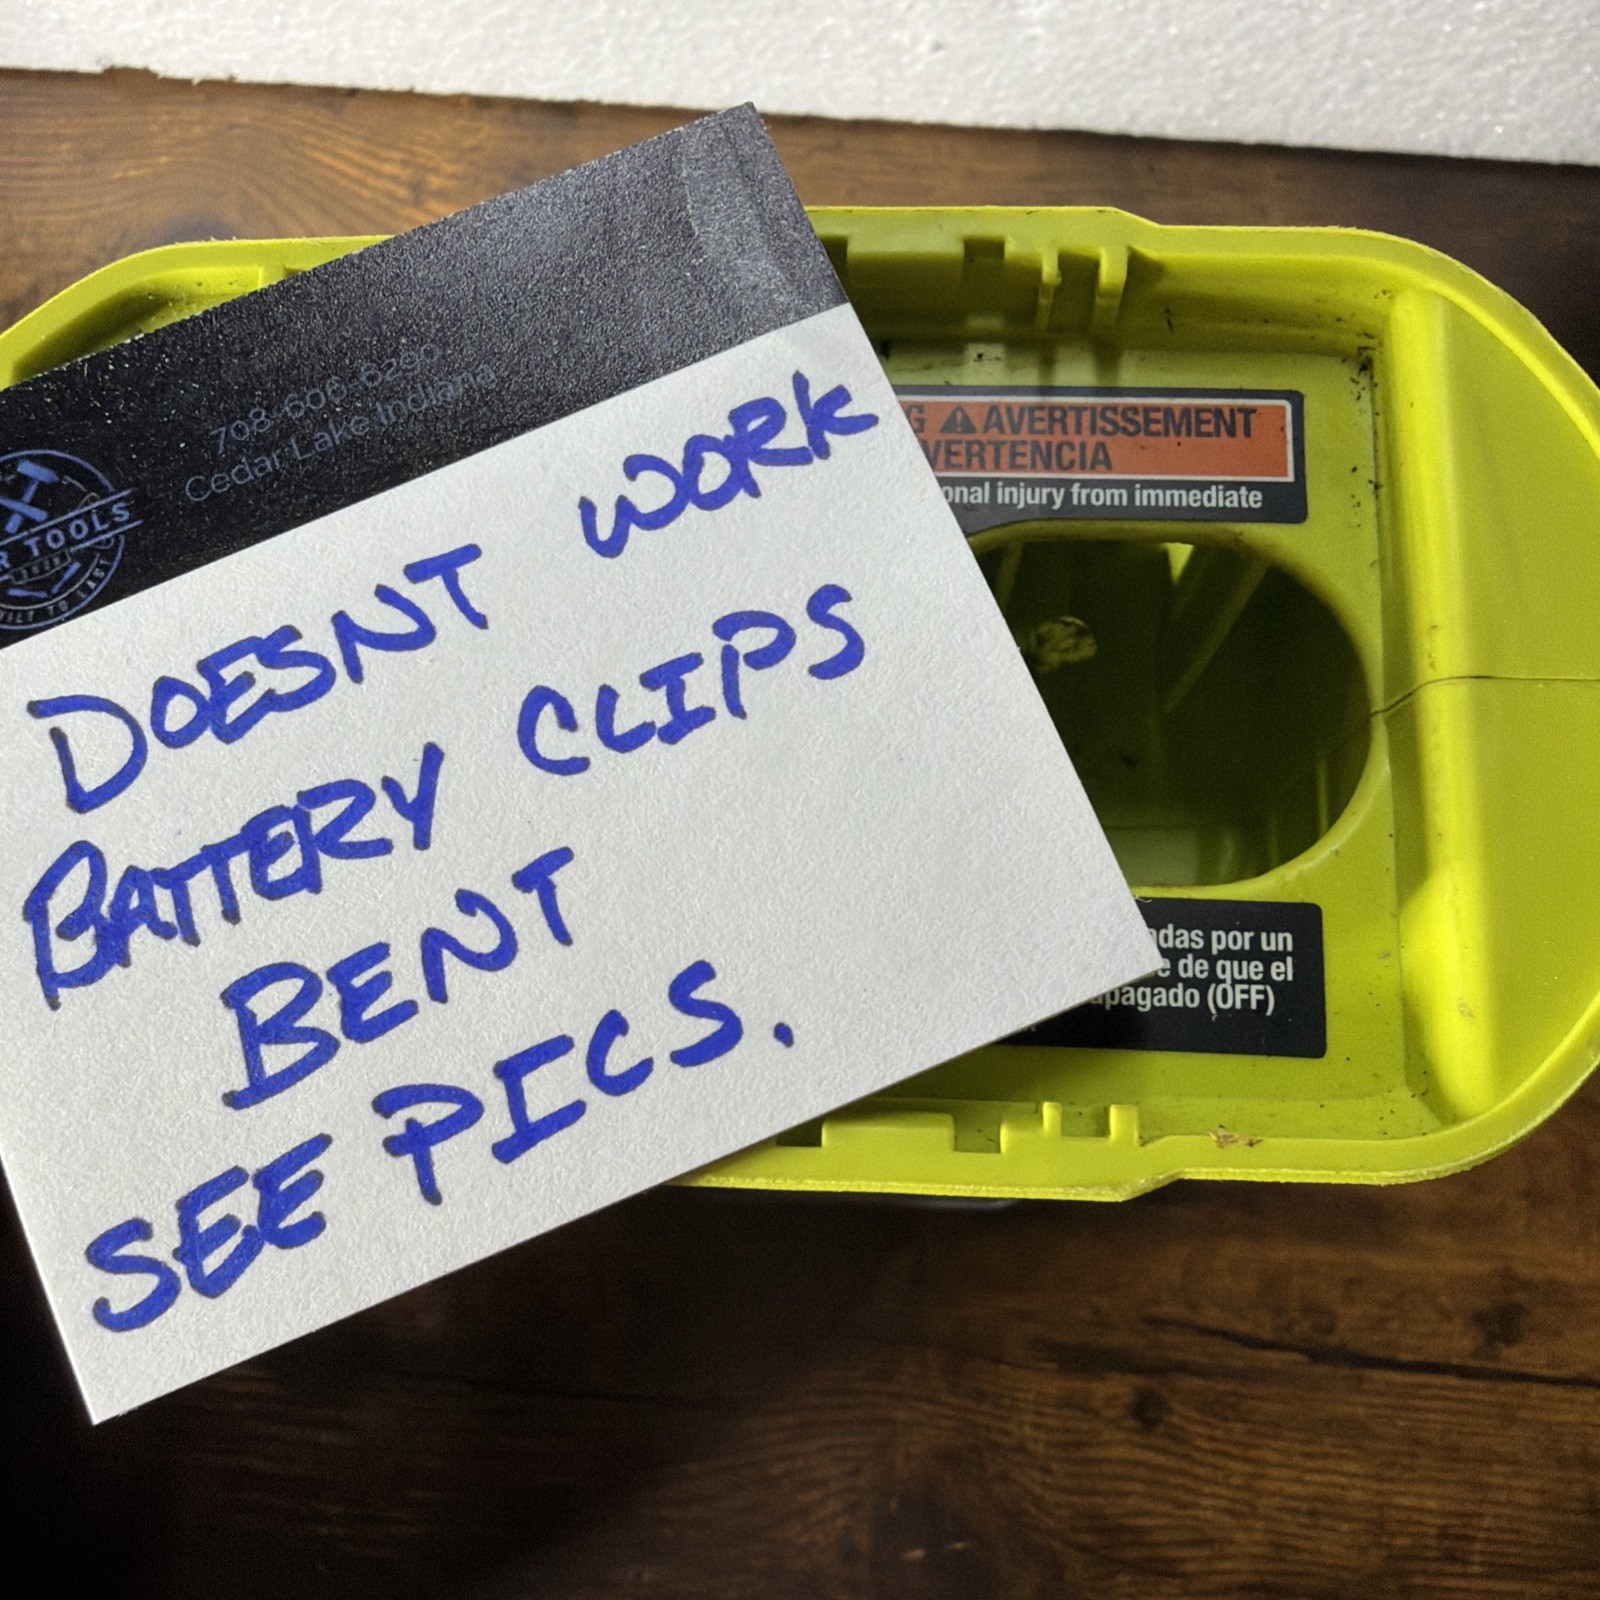 708-606-6290
Cedar Lake Indiana
TOOLS
DOESNT WORK
BATTERY CLIPS
BENT
SEE PICS.
G ⚠ AVERTISSEMENT
VERTENCIA
onal injury from immediate
ndas por un
e de que el
apagado (OFF)